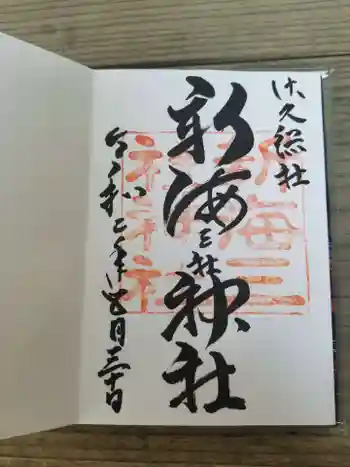 佐久総社
新海三社神社
令和二年四月三十日
新海三
社神社